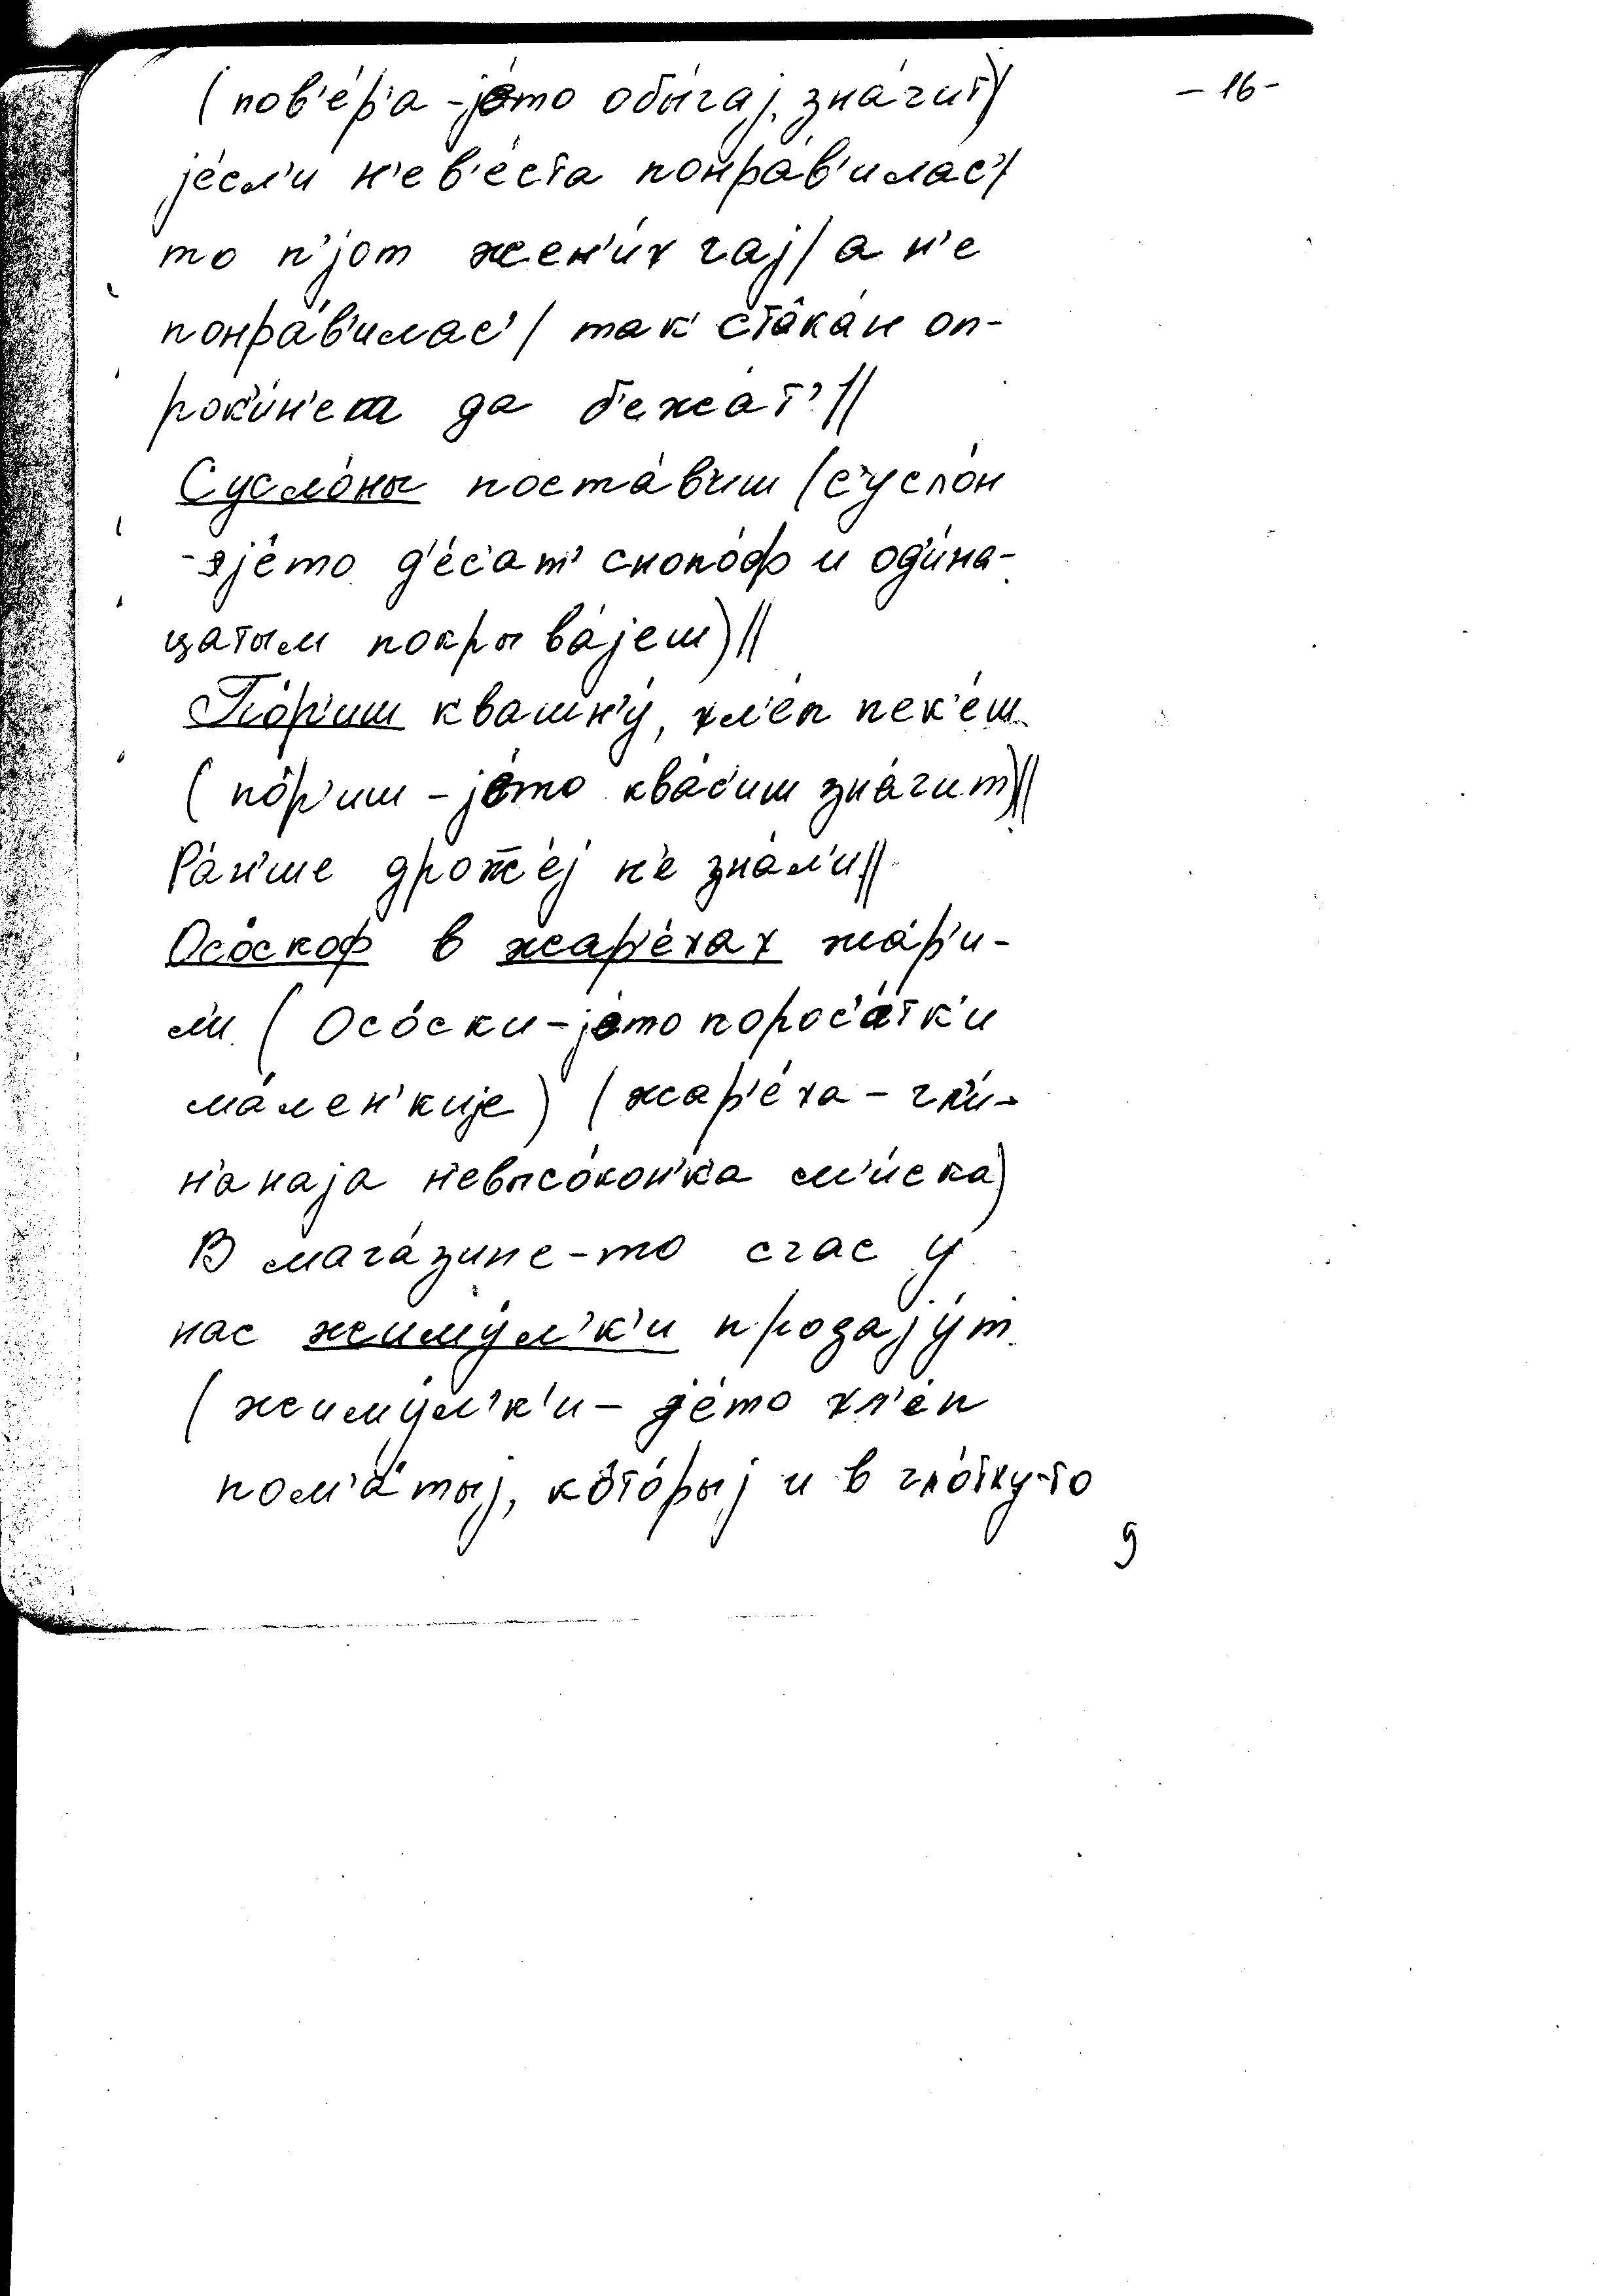 – 16 –
(пов'éр'а – jéто обы́чаj, знáчит)/
jéсл'и н'ев'éста понрáв'илас'/
то п'jот жен'и́х чаj/ а н'е
понрáв'илас'/ так стâкáн оп-
рок'и́н'ет да б'ежáт'//
Сусло́ны постáв'иш (суслóн
– jéто д'éс'ат' снопóф и од'и́на-
цатым покрывájеш)//
Пôр'иш квашн'ý, хл'éп пек'éш
(пôр'иш – jéто квáс'иш знáчит)//
Рáн'ше дрож̅éj н'е знáл'и//
Осóскоф в жар'éхах жáр'и-
л'и. (Осóски – jéто порос'áтк'и
мáлен'киjе) (жар'éха – гл'и́-
н'анаjа н'евысóкон'ка м'и́ска)
В магáзине-то счас у
нас жимýл'к'и продаjýт.
(жимýл'к'и – jéто хл'éп
пом'áтыj, кôтóрыj и в глóтку-то
9